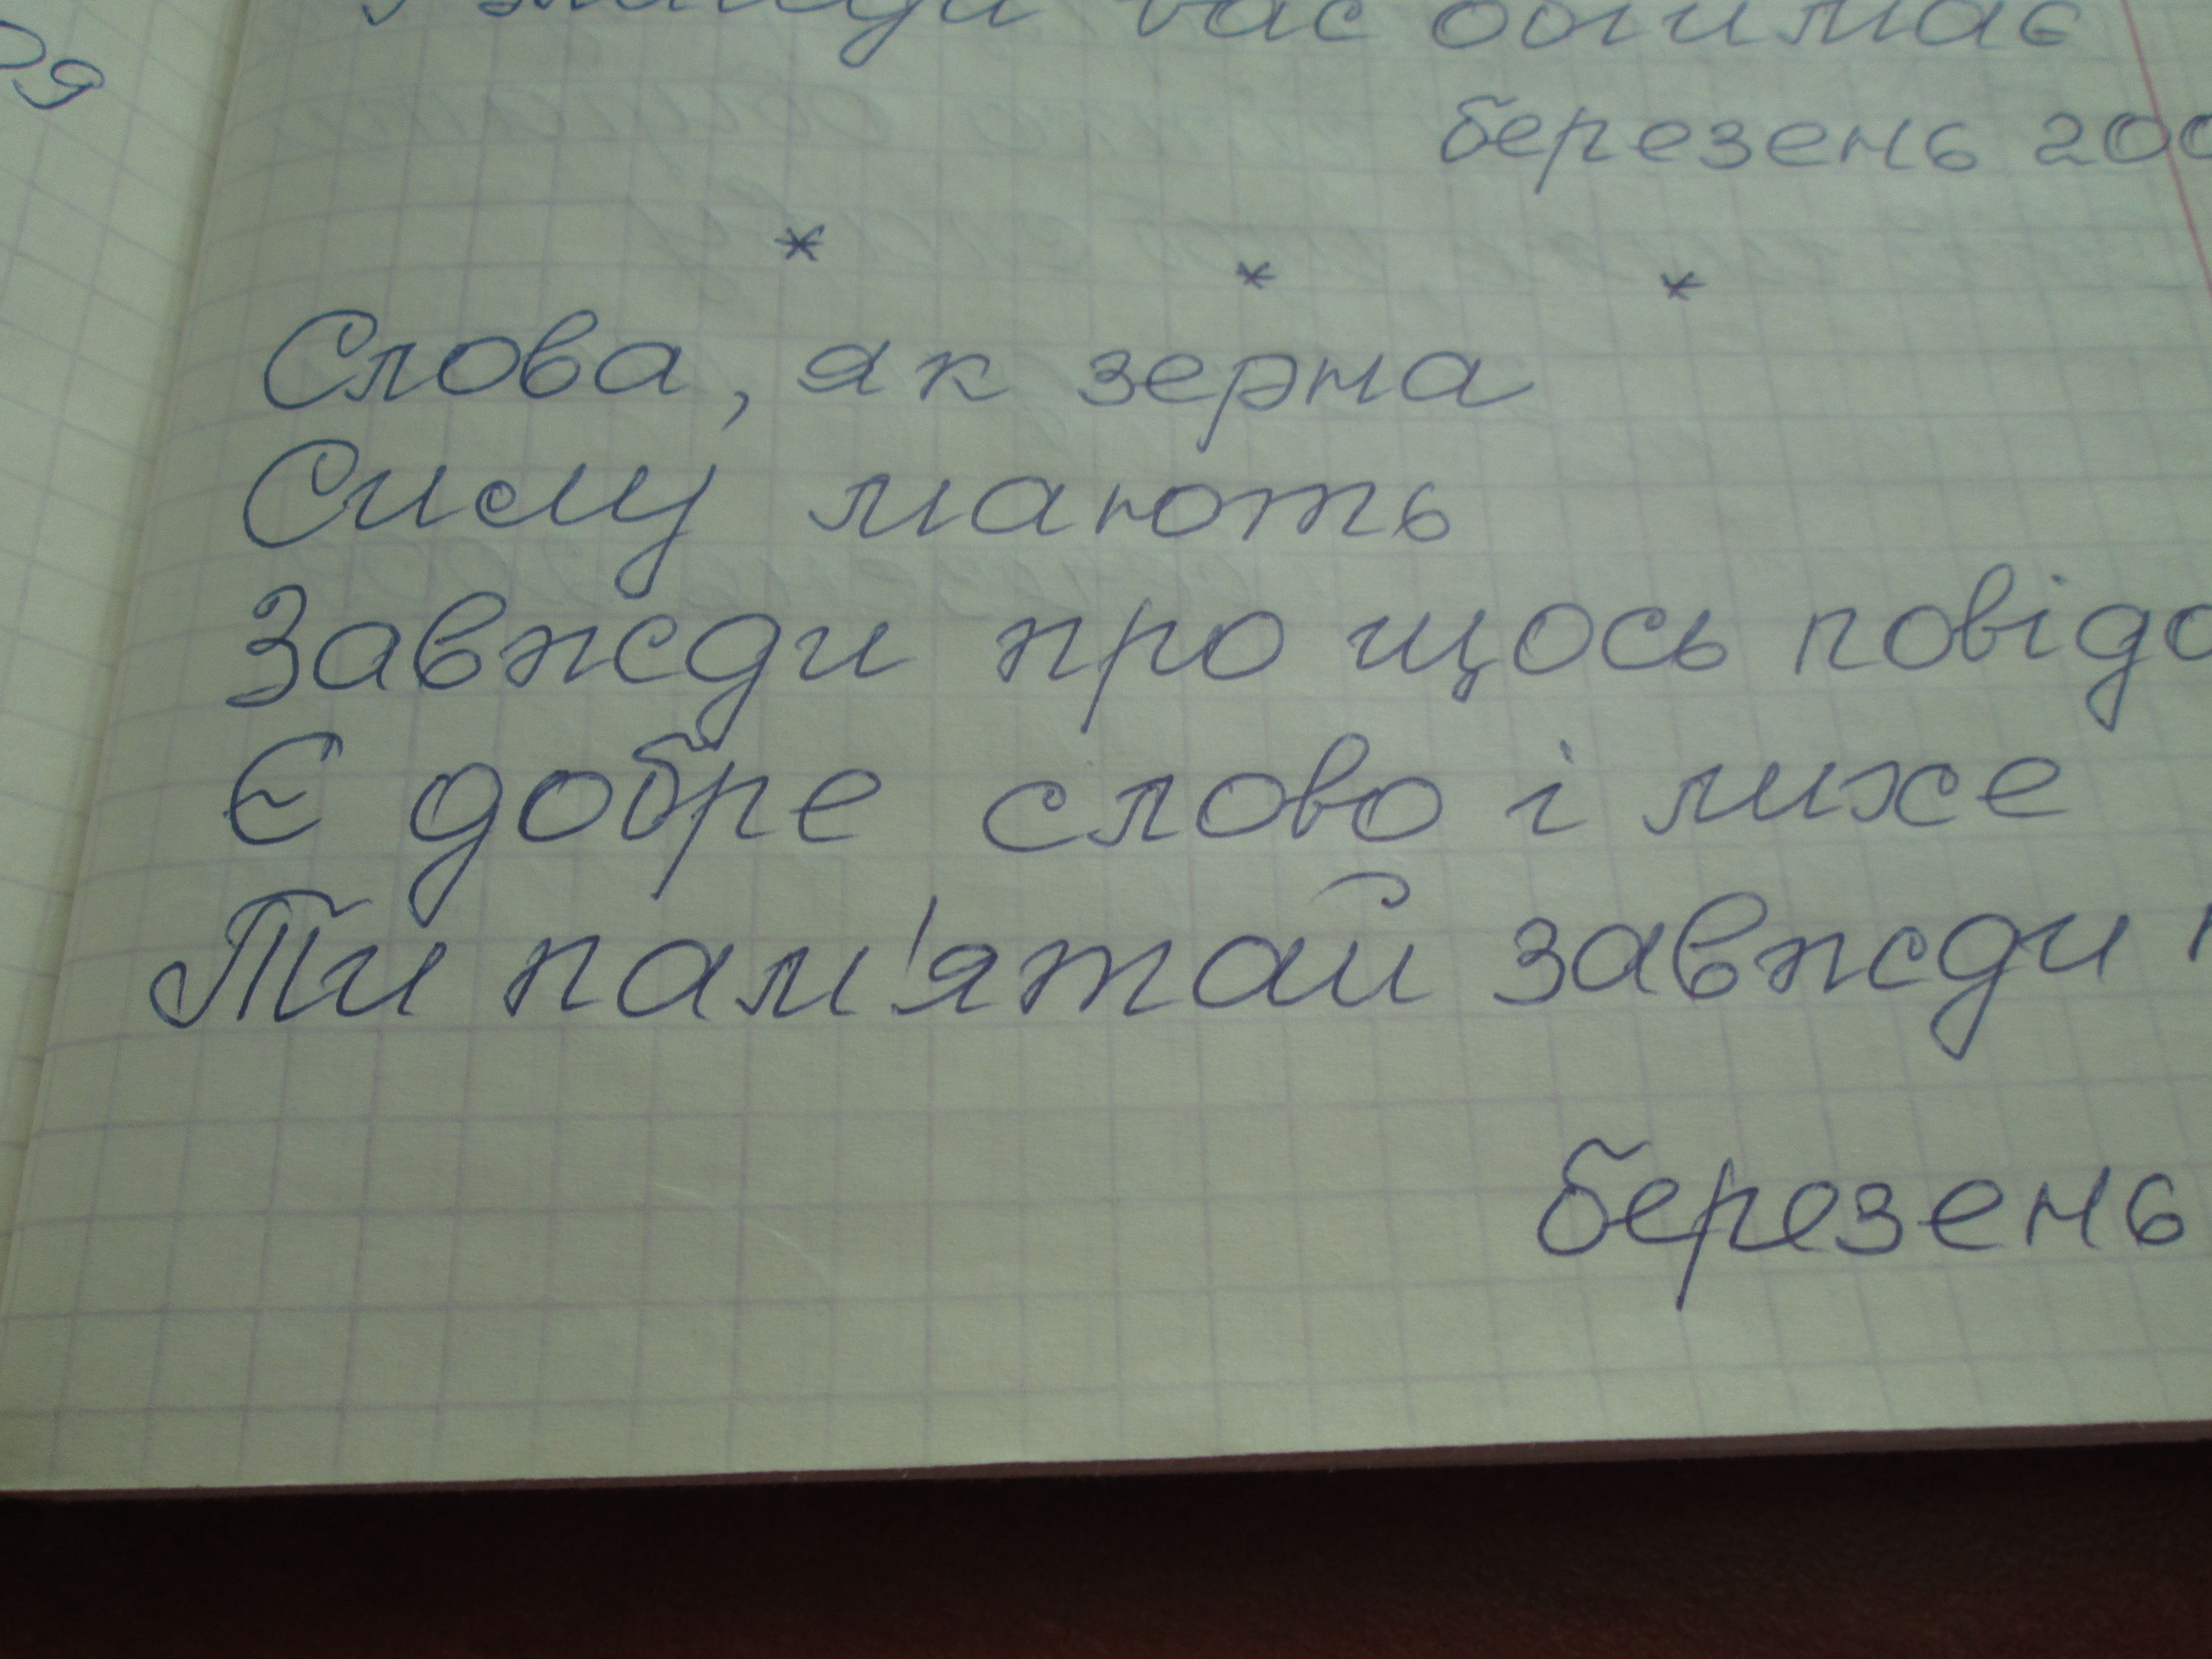 вас обіймає
березень 200
* * *
Слова, як зерна
Силу мають
Завжди про щось повідо
Є добре слово і лихе
Ти пам'ятай завжди
березень